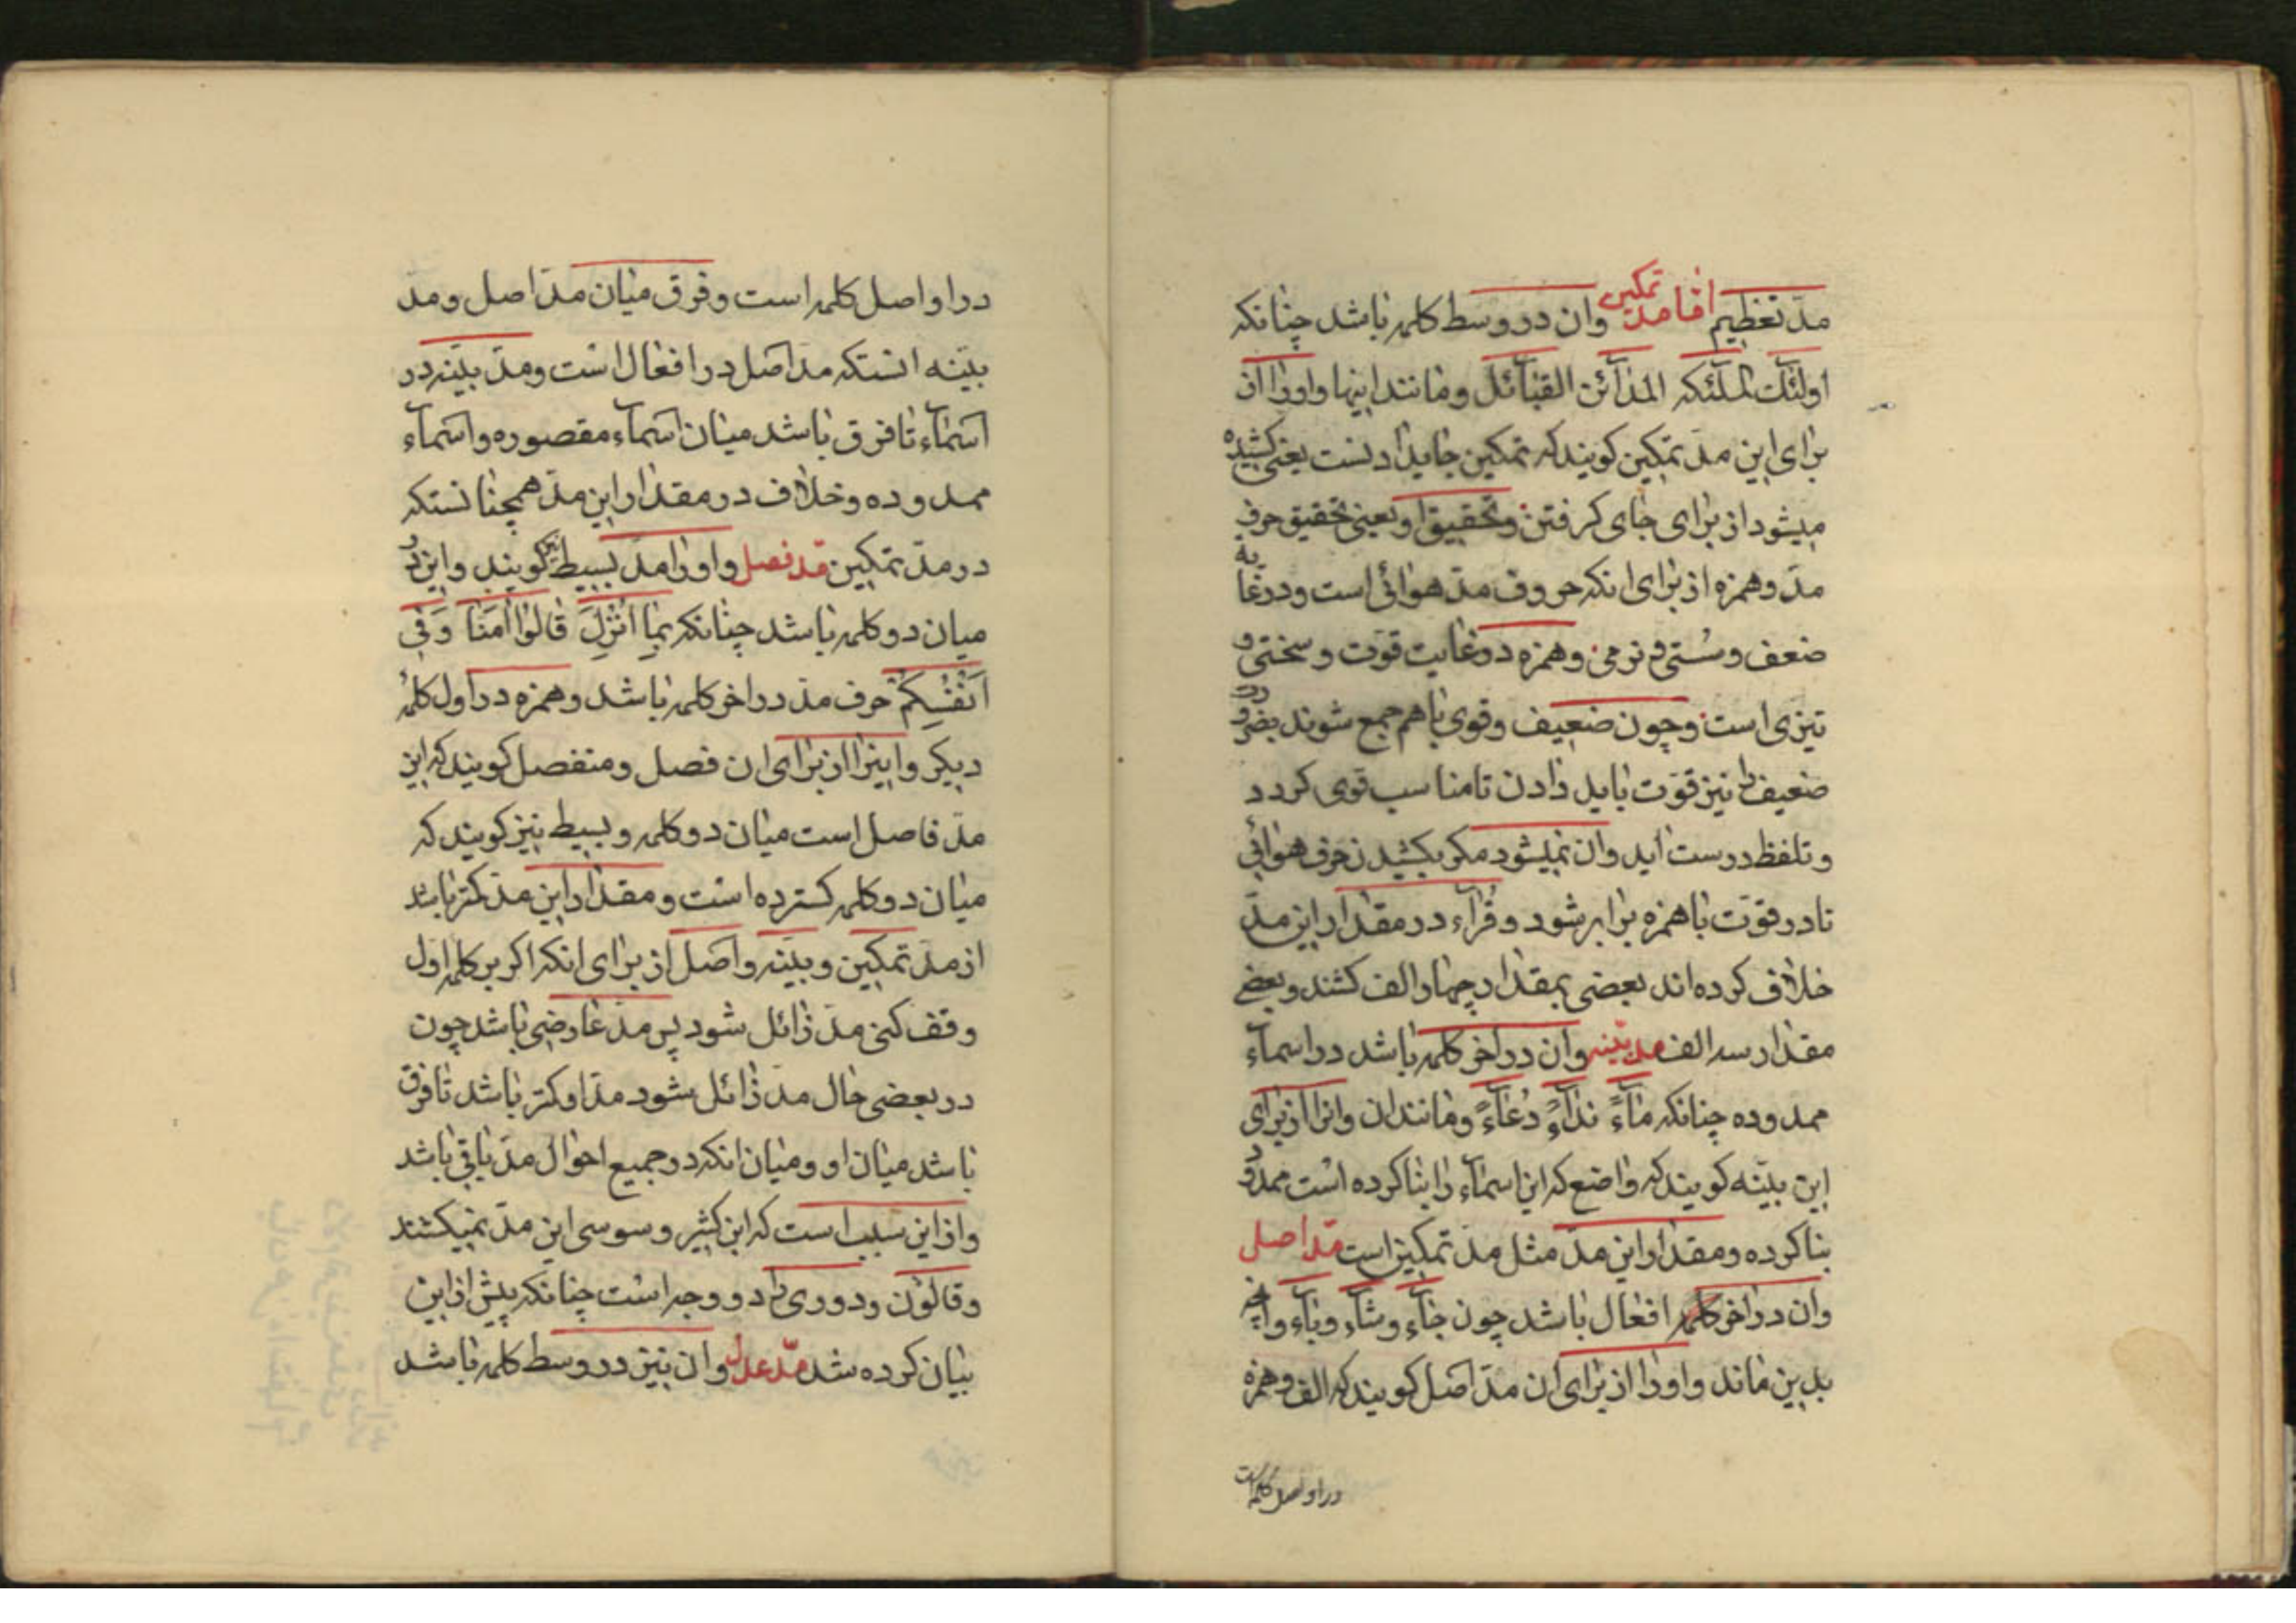 مدّ تعظیم امّا مدّ تمکین وان در وسط کلمه باشد چنانکه
اولئک الملئکه المدآئن القبآئل ومانند اینها واورا از
برای این مدّ تمکین کویند که تمکین جای دادنست یعنی کشیده
میشود از برای جای کرفتن وتحقیق او یعنی تحقیق حرف
مدّ وهمزه از برای انکه حروف مدّ هوائی است ودر غایة
ضعف وسُستی و نرمی وهمزه در غایت قوّت وسختی و
تیزی است وچون ضعیف وقوی باهم جمع شوند بضرورت
ضعیف را نیز قوّت باید دادن تا مناسب قوی کردد
وتلفظ درست آید وان نمیشود مکر بکشیدن حرف هوائی
تا در قوّت با همزه برابر شود وقرّاء در مقدار این مدّ
خلاف کرده اند بعضی بمقدار چهار الف کشند وبعضی
مقدار سه الف مدّ بیّنه وان در آخر کلمه باشد در اسماء
ممدوده چنانکه مآءً ندآءً دُعآءً ومانند ان وانرا از برای
این بیّنه کویند که واضع که این اسمآء را بنا کرده است ممدود
بنا کرده ومقدار این مدّ مثل مدّ تمکین است مدّ اصل
وان در اخر کلمه افعال باشد چون جآء وشآء وبآء وانچه
بدین ماند واورا از برای ان مدّ اصل کویند که الف وهمزه
در او اصل کلمه است
در او اصل کلمه است وفرق میان مدّ اصل ومدّ
بیّنه انستکه مدّ اصل در افعال است ومدّ بیّنه در
اسمآء تا فرق باشد میان اسمآء مقصوره واسمآء
ممدوده وخلاف در مقدار این مدّ همچنانستکه
در مدّ تمکین مدّ فصل واورا مدّ بسیط نیز کویند واین در
میان دو کلمه باشد چنانکه بِمٰا اُنْزِلَ قٰالُوا اٰمَنّٰا وَفی
اَنْفُسِکُمْ حرف مدّ در اخر کلمه باشد وهمزه در اول کلمهٔ
دیکر واینرا از برای ان فصل ومنفصل کویند که این
مدّ فاصل است میان دو کلمه وبسیط نیز کویند که
میان دو کلمه کسترده است ومقدار این مدّ کمتر باشد
از مدّ تمکین وبیّنه واصل از برای انکه اکر بر کلمه اوّل
وقف کنی مدّ زائل شود پس مدّ عارضی باشد چون
در بعضی حال مدّ زائل شود مدّ او کمتر باشد تا فرق
باشد میان او ومیان انکه در جمیع احوال مدّ باقی باشد
واز این سبب است که ابن کثیر وسوسی این مدّ نمیکشند
وقالون ودوری را دو وجه است چنانکه پیش از این
بیان کرده شد مدّ عدل وان نیز در وسط کلمه باشد